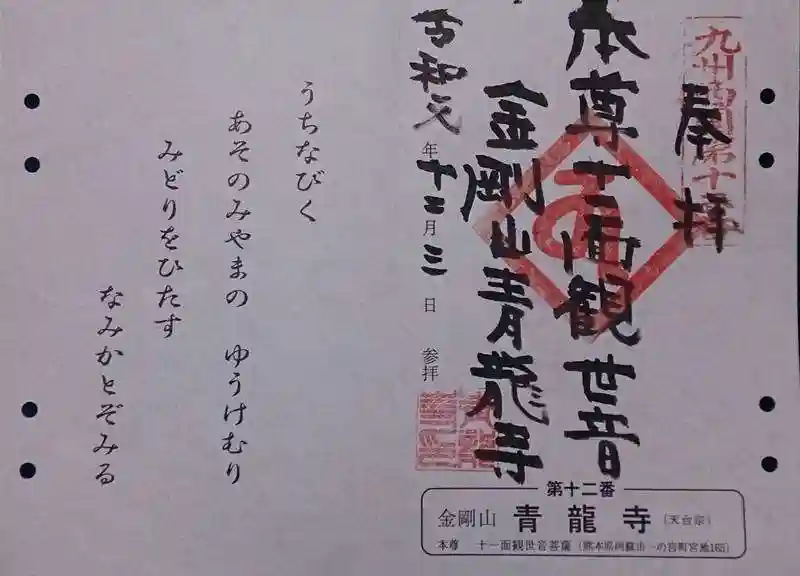 九州西国第十二番
奉拝
本尊十一面観世音
金剛山青龍寺
令和元年十二月三日 参拝
うちなびく
あそのみやまの ゆうけむり
みどりをひたす
なみかとぞみる
第十二番
金剛山 青龍寺 (天台宗)
本尊 十一面観世音菩薩 (熊本県阿蘇市一の宮町宮地165)